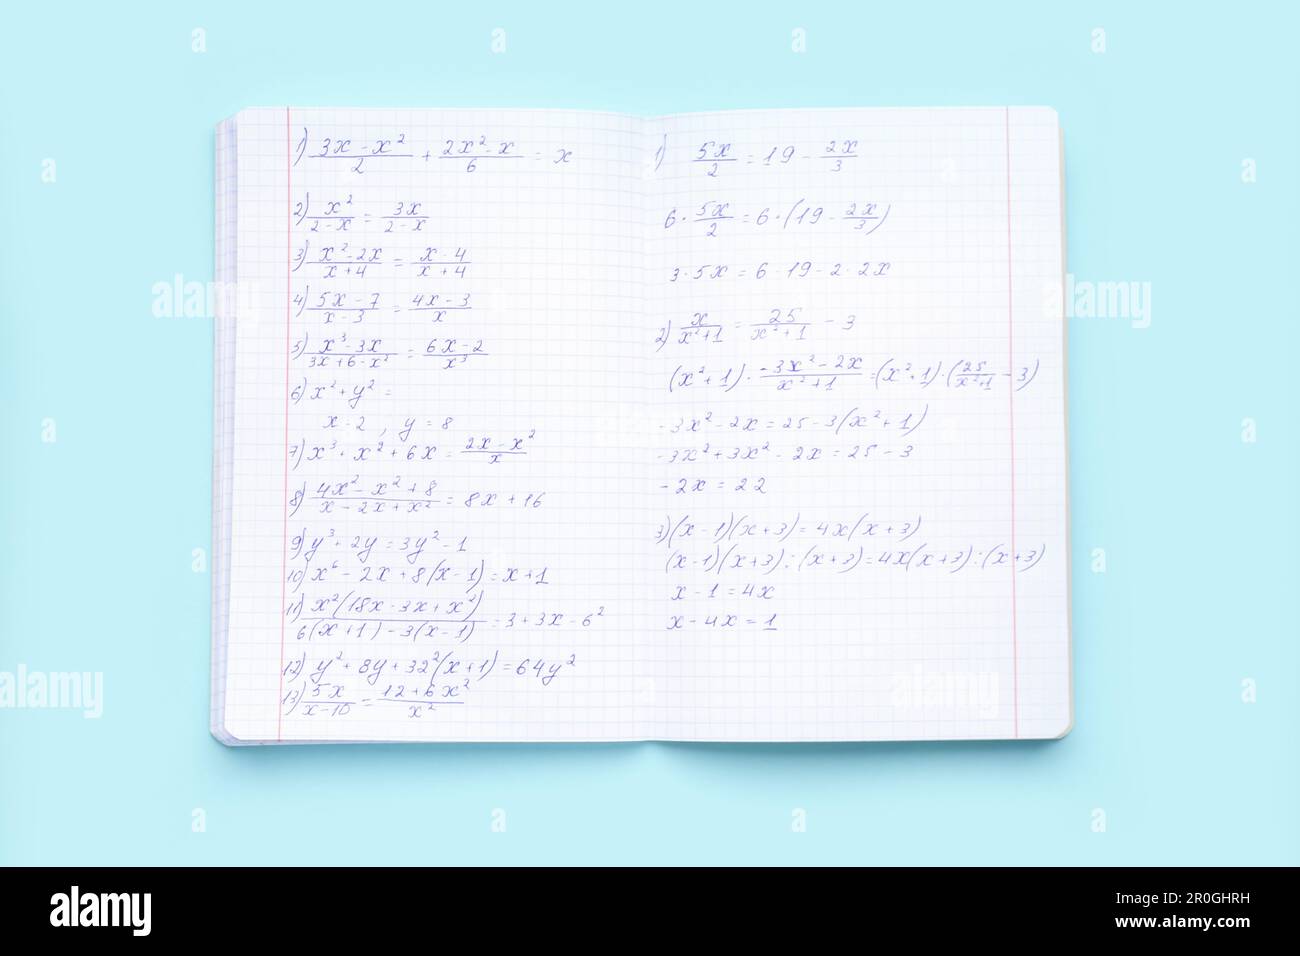 1) (3x - x²)/2 + (2x² - x)/6 = x
2) x²/(2 - x) = 3x/(2 - x)
3) (x² - 2x)/(x + 4) = (x - 4)/(x + 4)
4) (5x - 7)/(x - 3) = (4x - 3)/x
5) (x³ - 3x)/(3x + 6 - x²) = (6x - 2)/x³
6) x² + y² =
x - 2 , y = 8
7) x³ + x² + 6x = (2x - x²)/x
8) (4x² - x² + 8)/(x - 2x + x²) = 8x + 16
9) y³ + 2y = 3y² - 1
10) x⁶ - 2x + 8(x - 1) = x + 1
11) x²(18x - 3x + x²)/(6(x + 1) - 3(x - 1)) = 3 + 3x - 6²
12) y² + 8y + 32²(x + 1) = 64y²
13) 5x/(x - 10) = (12 + 6x²)/x²
1) 5x/2 = 19 - 2x/3
6 · 5x/2 = 6 · (19 - 2x/3)
3 · 5x = 6 · 19 - 2 · 2x
2) x/(x² + 1) = 25/(x² + 1) - 3
(x² + 1) · (-3x² - 2x)/(x² + 1) = (x² + 1) · (25/(x² + 1) - 3)
-3x² - 2x = 25 - 3(x² + 1)
-3x² + 3x² - 2x = 25 - 3
-2x = 22
3) (x - 1)(x + 3) = 4x(x + 3)
(x - 1)(x + 3) : (x + 3) = 4x(x + 3) : (x + 3)
x - 1 = 4x
x - 4x = 1
alamy
Image ID: 2R0GHRH
www.alamy.com